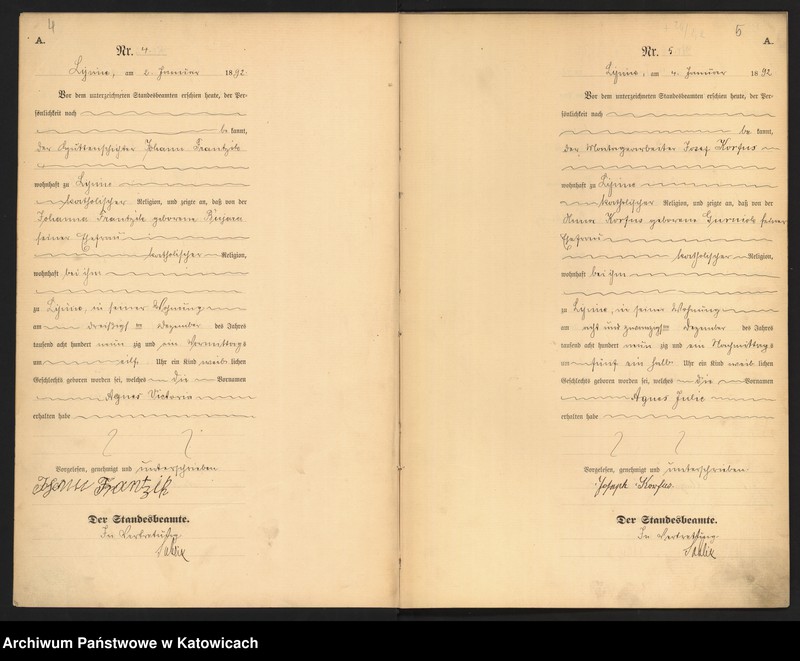 4
A.
Nr. 4
Lipine, am 2. Januar 1892
Vor dem unterzeichneten Standesbeamten erschien heute, der Per-
sönlichkeit nach
be kannt,
der Johann Frantzik
wohnhaft zu Lipine
katholischer Religion, und zeigte an, daß von der
Johanna Frantzik geborene
seiner Ehefrau
katholischer Religion,
wohnhaft bei ihm
zu Lipine, in seiner Wohnung
am dreißigsten Dezember des Jahres
tausend acht hundert neun zig und ein Vormittags
um eilf Uhr ein Kind weib lichen
Geschlechts geboren worden sei, welches die Vornamen
Agnes Victoria
erhalten habe
Vorgelesen, genehmigt und unterschrieben
Frantzik
Der Standesbeamte.
In Vertretung
5
A.
Nr. 5
Lipine, am 4. Januar 1892
Vor dem unterzeichneten Standesbeamten erschien heute, der Per-
sönlichkeit nach
be kannt,
der Montagearbeiter Josef Korfus
wohnhaft zu Lipine
katholischer Religion, und zeigte an, daß von der
Anna Korfus geborene seiner
Ehefrau
katholischer Religion,
wohnhaft bei ihm
zu Lipine, in seiner Wohnung
am acht und zwanzigsten Dezember des Jahres
tausend acht hundert neun zig und ein Nachmittags
um fünf ein halb Uhr ein Kind weib lichen
Geschlechts geboren worden sei, welches die Vornamen
Agnes Julie
erhalten habe
Vorgelesen, genehmigt und unterschrieben
Joseph Korfus
Der Standesbeamte.
In Vertretung
Archiwum Państwowe w Katowicach